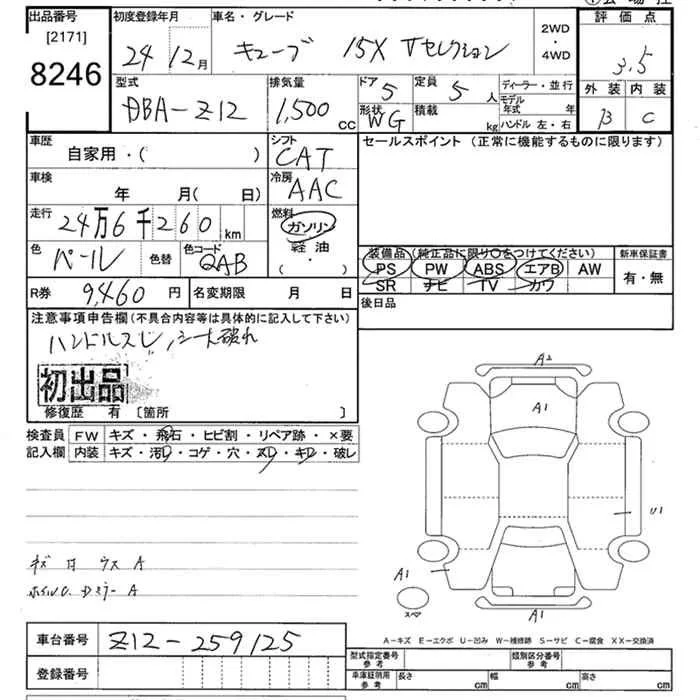 出品番号
[2171]
8246
初度登録年月
24 12月
車名・グレード
キューブ 15X Vセレクション
2WD
・
4WD
評価点
3.5
外装 内装
B C
型式
DBA-Z12
排気量
1,500 cc
ドア 5
形状 WG
定員 5 人
積載 kg
ディーラー・並行
モデル年式 年
ハンドル 左・右
車歴
自家用・( )
シフト
CAT
セールスポイント (正常に機能するものに限ります)
車検
年 月(日)
冷房
AAC
走行
24万6千260km
燃料
ガソリン
軽油
( ・ )
色 パール 色替 色コード QAB
装備品(純正品に限り○をつけてください)
PS PW ABS エアB AW
SR ナビ TV カワ
新車保証書
有・無
R券 9,460円 名変期限 月 日
後日品
注意事項申告欄(不具合内容等は具体的に記入して下さい)
ハンドルスレ,シート破れ
初出品
修復歴 有 [箇所 ]
検査員 FW キズ・飛石・ヒビ割・リペア跡・×要
記入欄 内装 キズ・汚レ・コゲ・穴・スレ・キレ・破レ
A2
A1
U1
A1
スペア
A1
キズ 凹 ウス A
ホイルC. Dミラー A
A-キズ E-エクボ U-凹み W-補修跡 S-サビ C-腐食 XX-交換済
車台番号 Z12-259125
登録番号
型式指定番号
参考
類別区分番号
参考
車庫証明用
参考
長さ cm 幅 cm 高さ cm